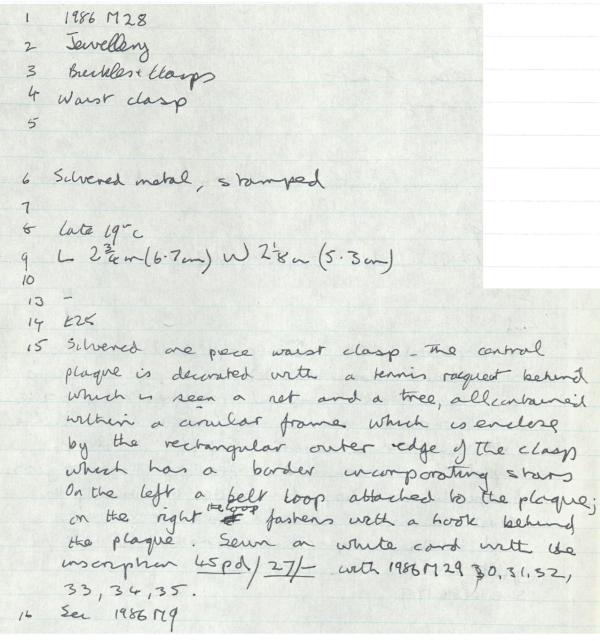 1 1986 M28
2 Jewellery
3 Buckles + Clasps
4 Waist clasp
5
6 Silvered metal, stamped
7
8 Late 19th c
9 L 2 3/4 in (6.7cm) W 2 1/8 in (5.3cm)
10
13 -
14 £25
15 Silvered one piece waist clasp - The central
plaque is decorated with a tennis racquet behind
which is seen a net and a tree, all contained
within a circular frame which is enclose
by the rectangular outer edge of the clasp
which has a border incorporating stars
On the left a belt loop attached to the plaque;
on the right the loop fastens with a hook behind
the plaque. Sewn on white card with the
inscription 45pd / 27/- with 1986 M29 30, 31, 32,
33, 34, 35.
16 See 1986 M9